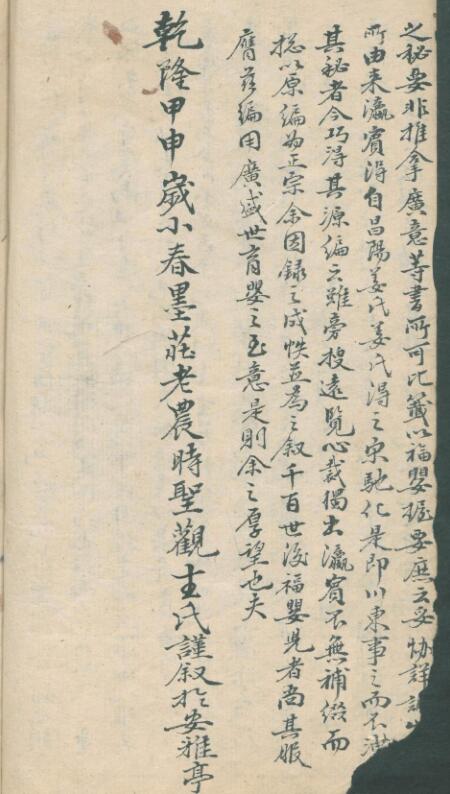 之秘要非推拿廣意等書所可比籤以福嬰握要庶云妥協詳
所由来瀛賓得自昌陽姜氏姜氏得之宋馳化是即川東事之而不
其秘者今巧得其源編云雖旁搜遠覽心裁獨出瀛賓不無補綴而
總以原編為正宗余因録之成帙並為之叙千百世後福嬰児者尚其服
膺茲編用廣盛世育嬰之至意是則余之厚望也夫
乾隆甲申歲小春墨莊老農時聖觀王氏謹叙於安雅亭